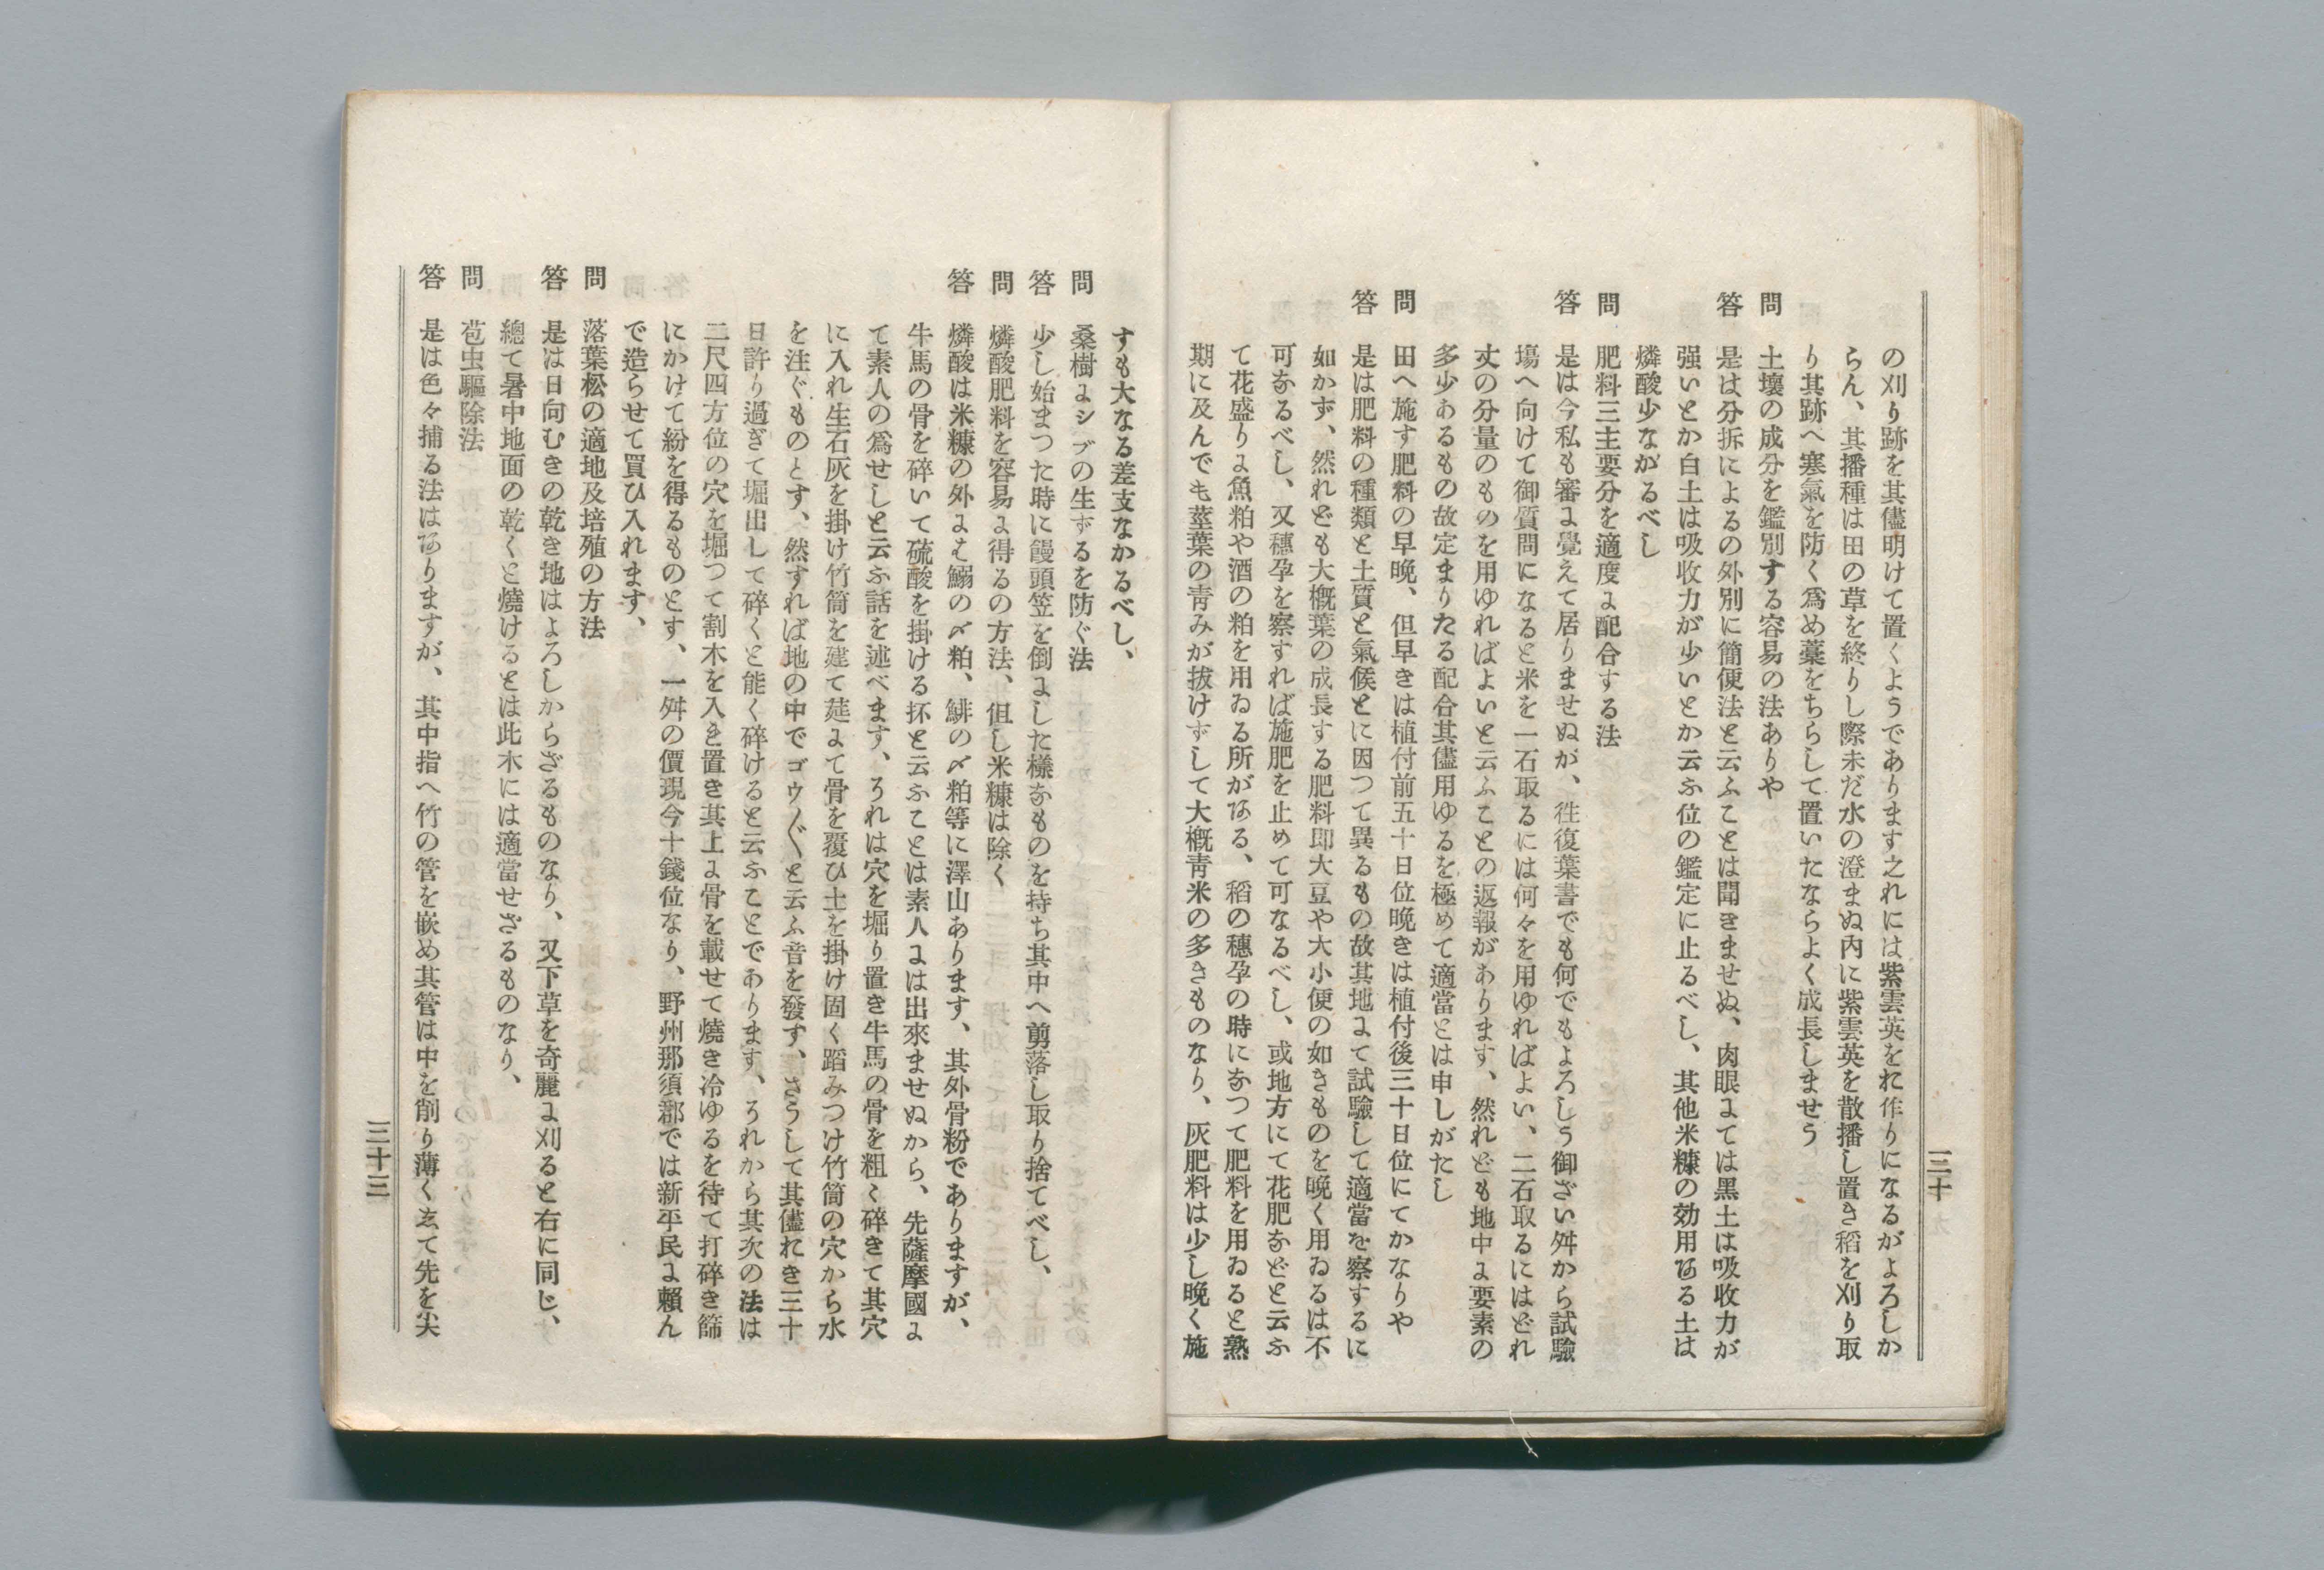 の刈り跡を其儘明けて置くようであります之れには紫雲英をお作りになるがよろしか
らん、其播種は田の草を終りし際未だ水の澄まぬ内に紫雲英を散播し置き稻を刈り取
り其跡へ寒氣を防く爲め藁をちらして置いたならよく成長しませう
問 土壤の成分を鑑別する容易の法ありや
答 是は分拆によるの外別に簡便法と云ふことは聞きませぬ、肉眼にては黒土は吸收力が
强いとか白土は吸收力が少いとか云ふ位の鑑定に止るべし、其他米糠の効用ある土は
燐酸少なかるべし
問 肥料三主要分を適度に配合する法
答 是は今私も審に覺えて居りませぬが、徃復葉書でも何でもよろしう御ざい舛から試驗
塲へ向けて御質問になると米を一石取るには何々を用ゆればよい、二石取るにはどれ
丈の分量のものを用ゆればよいと云ふことの返報があります、然れども地中に要素の
多少あるもの故定まりたる配合其儘用ゆるを極めて適當とは申しがたし
問 田へ施す肥料の早晩、但早きは植付前五十日位晩きは植付後三十日位にてかなりや
答 是は肥料の種類と土質と氣候とに因つて異るもの故其地にて試驗して適當を察するに
如かず、然れども大概葉の成長する肥料即大豆や大小便の如きものを晩く用ゐるは不
可なるべし、又穗孕を察すれば施肥を止めて可なるべし、或地方にて花肥などと云ふ
て花盛りに魚粕や酒の粕を用ゐる所がある、稻の穗孕の時になつて肥料を用ゐると熟
期に及んでも莖葉の靑みが拔けずして大概靑米の多きものなり、灰肥料は少し晩く施
三十
すも大なる差支なかるべし、
問 桑樹にシブの生ずるを防ぐ法
答 少し始まつた時に饅頭笠を倒にした樣なものを持ち其中へ剪落し取り捨てべし、
問 燐酸肥料を容易に得るの方法、但し米糠は除く
答 燐酸は米糠の外にも鰯の〆粕、鯡の〆粕等に澤山あります、其外骨粉でありますが、
牛馬の骨を碎いて硫酸を掛ける抔と云ふことは素人には出來ませぬから、先薩摩國に
て素人の爲せしと云ふ話を述べます、それは穴を堀り置き牛馬の骨を粗く碎きて其穴
に入れ生石灰を掛け竹筒を建て莚にて骨を覆ひ土を掛け固く蹈みつけ竹筒の穴から水
を注ぐものとす、然すれば地の中でゴウ〲と云ふ音を發す、さうして其儘おき三十
日許り過ぎて堀出して碎くと能く碎けると云ふことであります、それから其次の法は
二尺四方位の穴を堀つて割木を入を置き其上に骨を載せて燒き冷ゆるを待て打碎き篩
にかけて紛を得るものとす、一舛の價現今十錢位なり、野州那須郡では新平民に賴ん
で造らせて買ひ入れます、
問 落葉松の適地及培殖の方法
答 是は日向むきの乾き地はよろしからざるものなり、又下草を奇麗に刈ると右に同じ、
總て暑中地面の乾くと燒けるとは此木には適當せざるものなり、
問 苞虫驅除法
答 是は色々捕る法はありますが、其中指へ竹の管を嵌め其管は中を削り薄くゑて先を尖
三十三